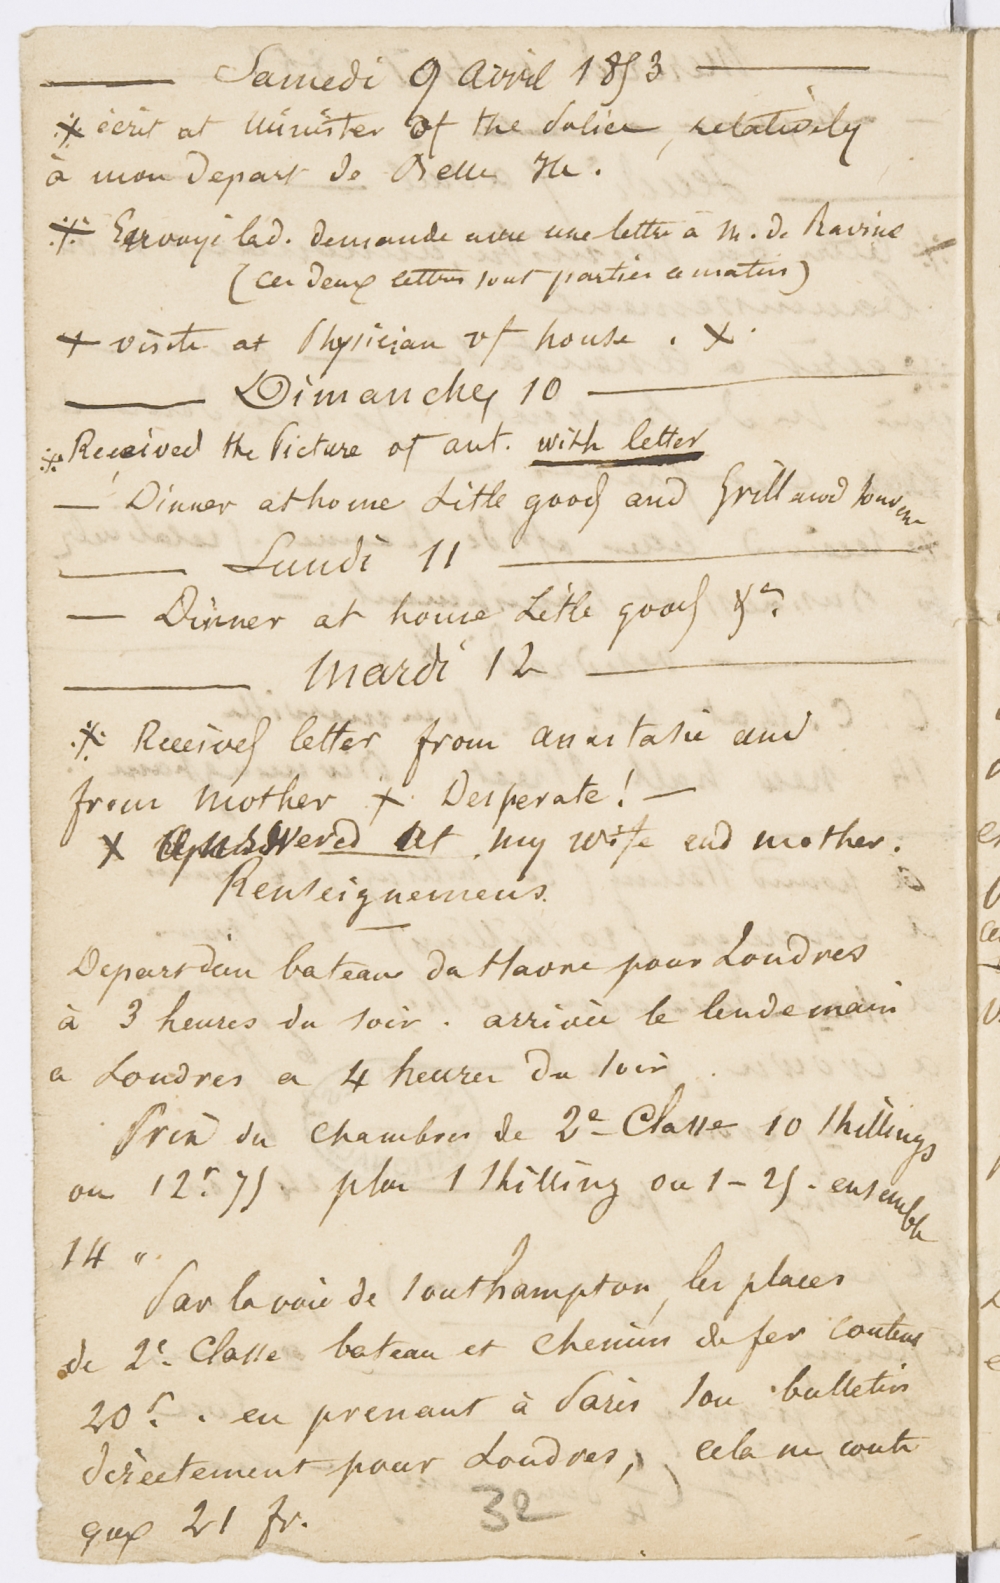 Samedi 9 avril 1853
écrit at Minister of the Police, relatively
à mon Depart de Belle Ile.
Envoyé lad. demande avec une lettre à M. de Ravine
(ces deux lettres sont parties ce matin)
+ visite at Physician of house. X.
Dimanche, 10
Received the Picture of ant. with letter
— Dinner at home Litle good and Grill and
Lundi 11
— Dinner at home Litle good &a.
Mardi 12
Received letter from anastasie and
from mother + Desperate! —
X Answered at my wife end mother.
Renseignemens.
Depart d'un bateau du Havre pour Londres
à 3 heures du soir. arrivée le lendemain
a Londres a 4 heures du soir
Prix du chambres de 2e Classe 10 Shillings
ou 12f. 75. plus 1 Shilling ou 1-25. ensemble
14 "
Par la voie de Southampton, les places
de 2e. Classe bateau et chemin de fer coutent
20f. . en prenant à Paris son bulletin
directement pour Londres, cela ne coute
que 21 fr.
32